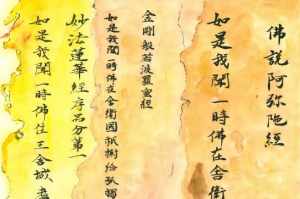 佛說阿弥陀經
如是我聞一時佛在舍衛
金剛般若波羅蜜經
如是我聞一時佛在舍衛國祇樹給孤獨
妙法蓮華經序品第一
如是我聞一時佛住王舍城耆